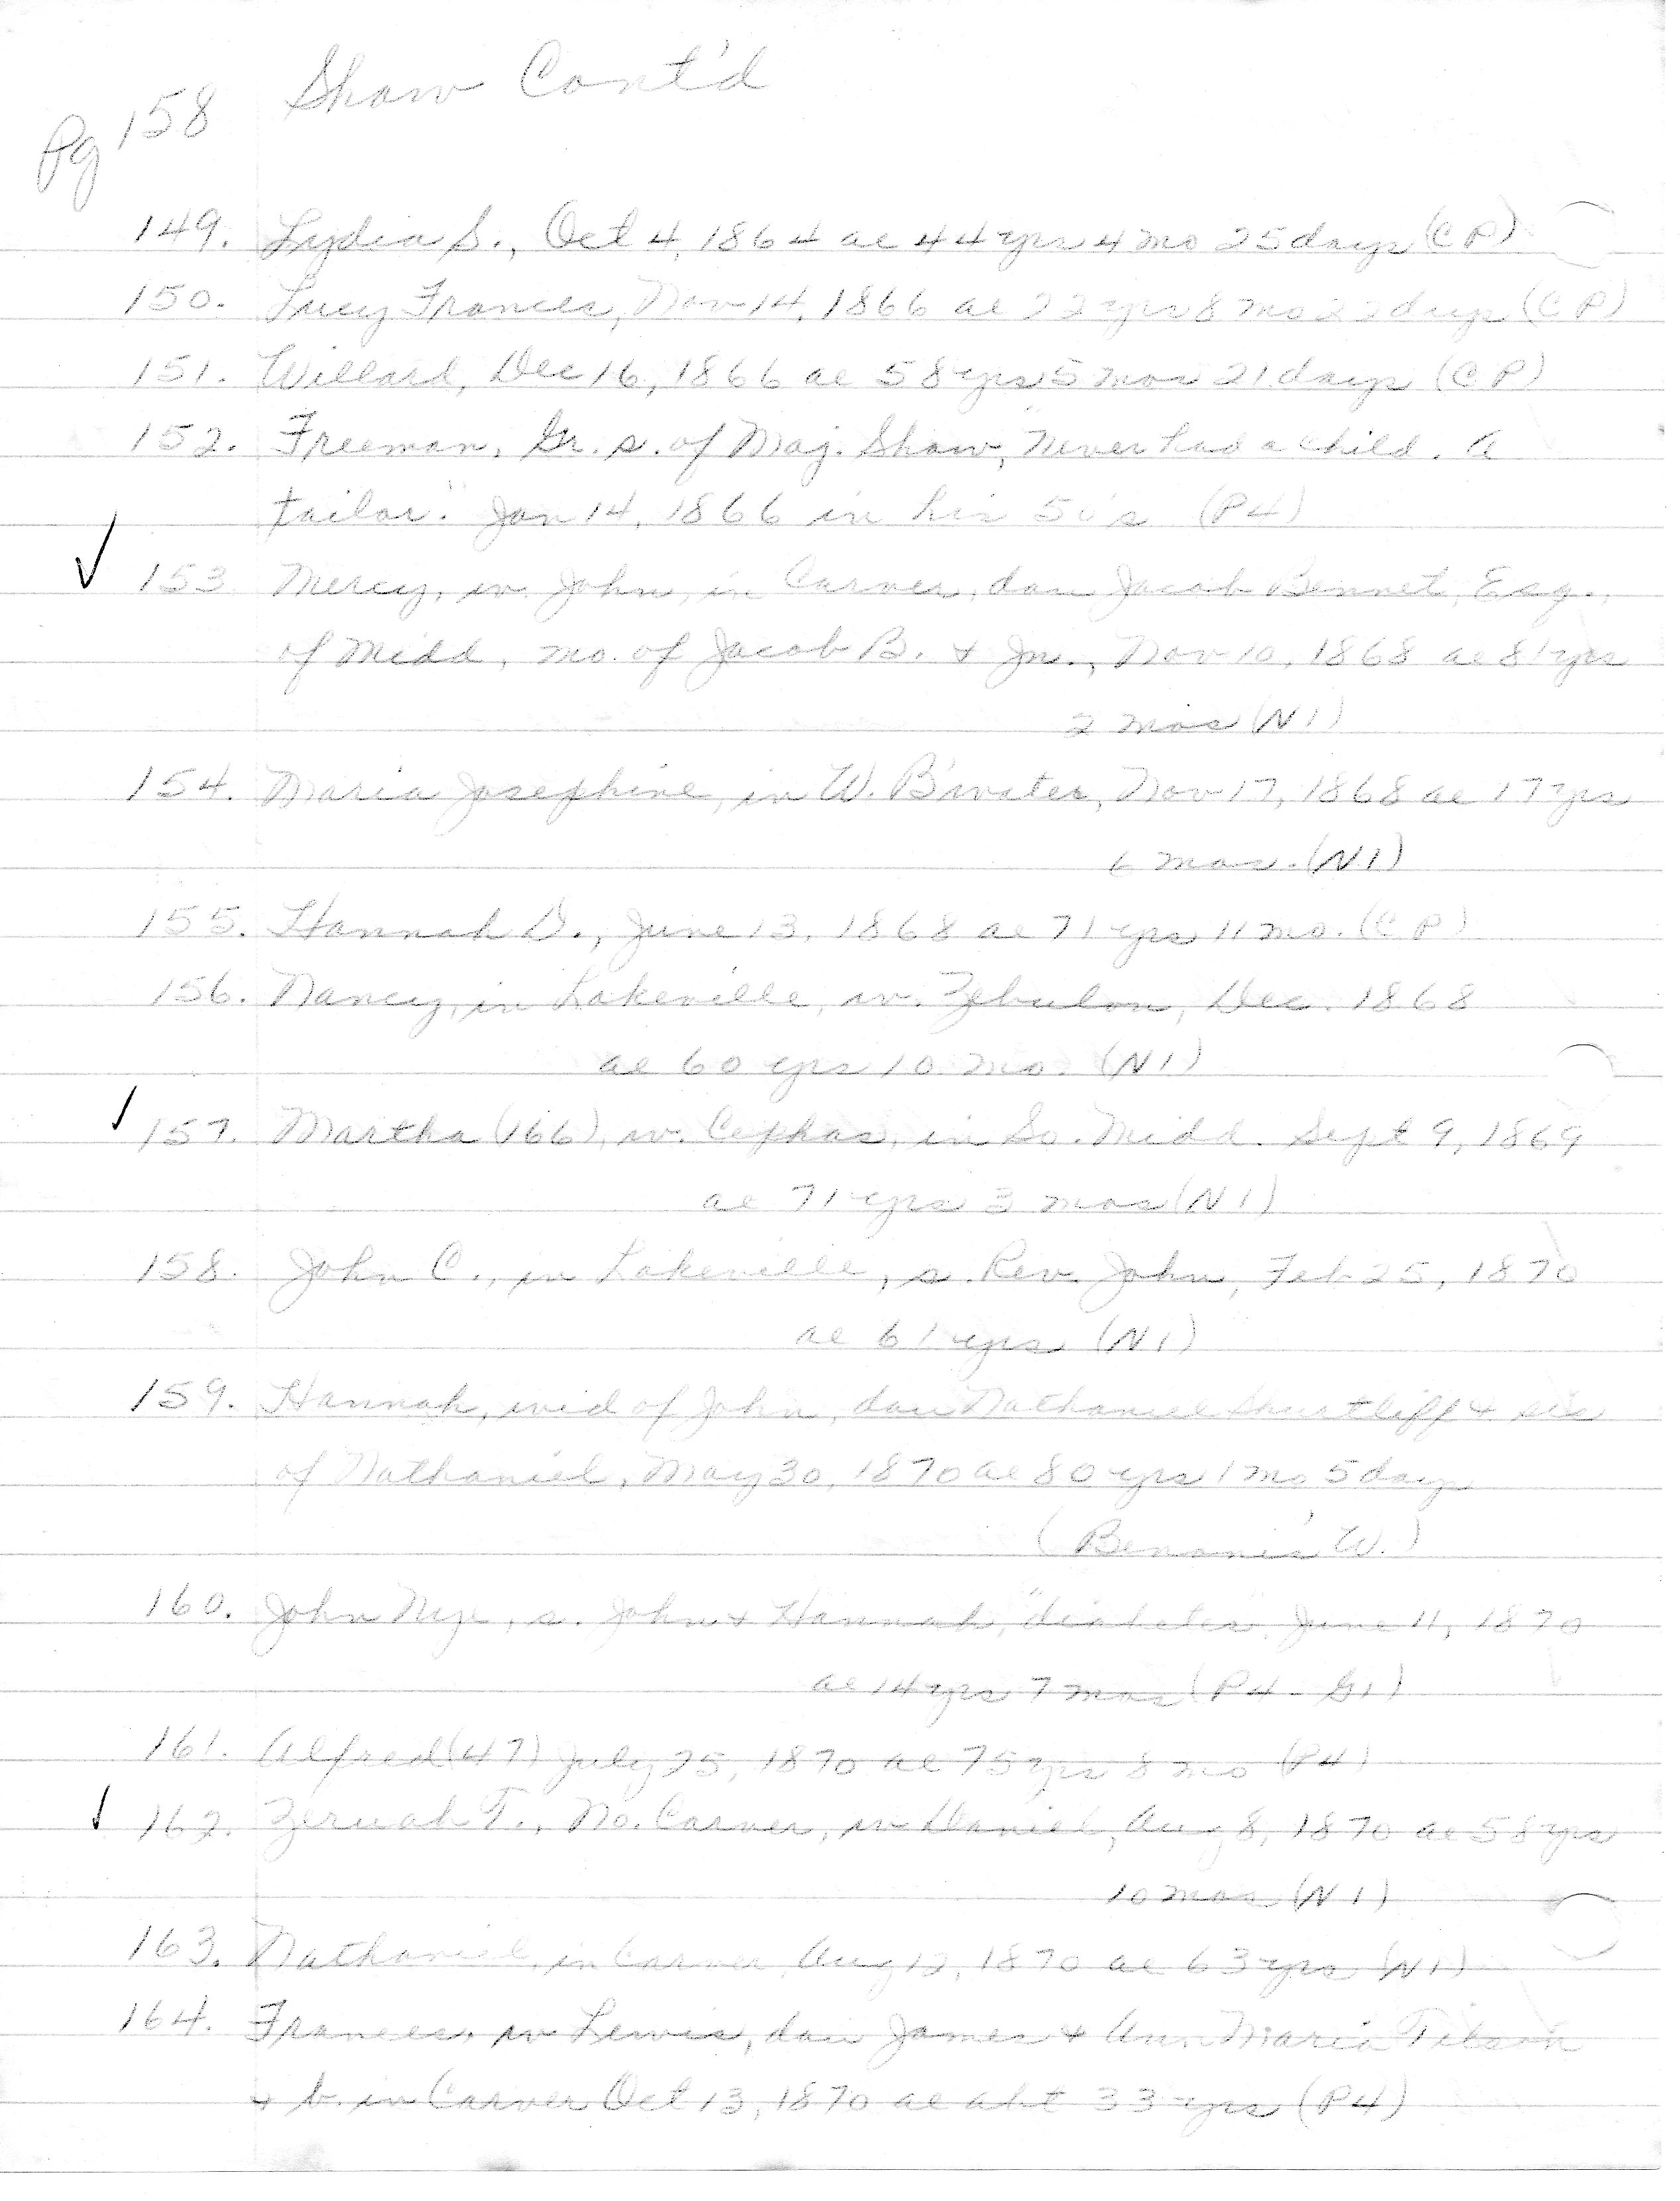 Shaw Cont'd
Pg 158
149. Lydia S., Oct 4, 1864 ae 44 yrs 4 mo 25 days (CP)
150. Lucy Frances, Nov 14, 1866 ae 22 yrs 8 mo 22 days (CP)
151. Willard, Dec 16, 1866 ae 58 yrs 5 mos 21 days (CP)
152. Freeman, Gr. s. of Maj. Shaw, "Never had a child. A
tailor." Jan 14, 1866 in his 50's (P4)
✓ 153 Mercy, w. John, in Carver, dau Jacob Bennet, Esq.,
of Midd, mo. of Jacob B. + Jn., Nov 10, 1868 ae 81 yrs
2 mos (N1)
154. Maria Josephine, in W. B'water, Nov 17, 1868 ae 17 yrs
6 mos. (N1)
155. Hannah D., June 13, 1868 ae 71 yrs 11 mo. (CP)
156. Nancy, in Lakeville, w. Zebulon, Dec. 1868
ae 60 yrs 10 mos (N1)
✓ 157. Martha (166), w. Cephas, in So. Midd. Sept 9, 1869
ae 71 yrs 3 mos (N1)
158. John C., in Lakeville, s. Rev. John, Feb 25, 1870
ae 61 yrs (N1)
159. Hannah, wid of John, dau Nathaniel Shurtliff + sis
of Nathaniel, May 30, 1870 ae 80 yrs 1 mo 5 days
(Benonis' W.)
160. John Nye, s. John + Hannah, "diabetes" June 11, 1870
ae 14 yrs 7 mos (P4 - G1)
161. Alfred (47) July 25, 1870 ae 75 yrs 8 mo (P4)
✓ 162. Zeruah T., No. Carver, w Daniel, Aug 8, 1870 ae 58 yrs
10 mos (N1)
163. Nathaniel, in Carver, Aug 12, 1870 ae 63 yrs (N1)
164. Frances, w Lewis, dau James + Ann Maria Tilson
+ b. in Carver Oct 13, 1870 ae abt 33 yrs (P4)